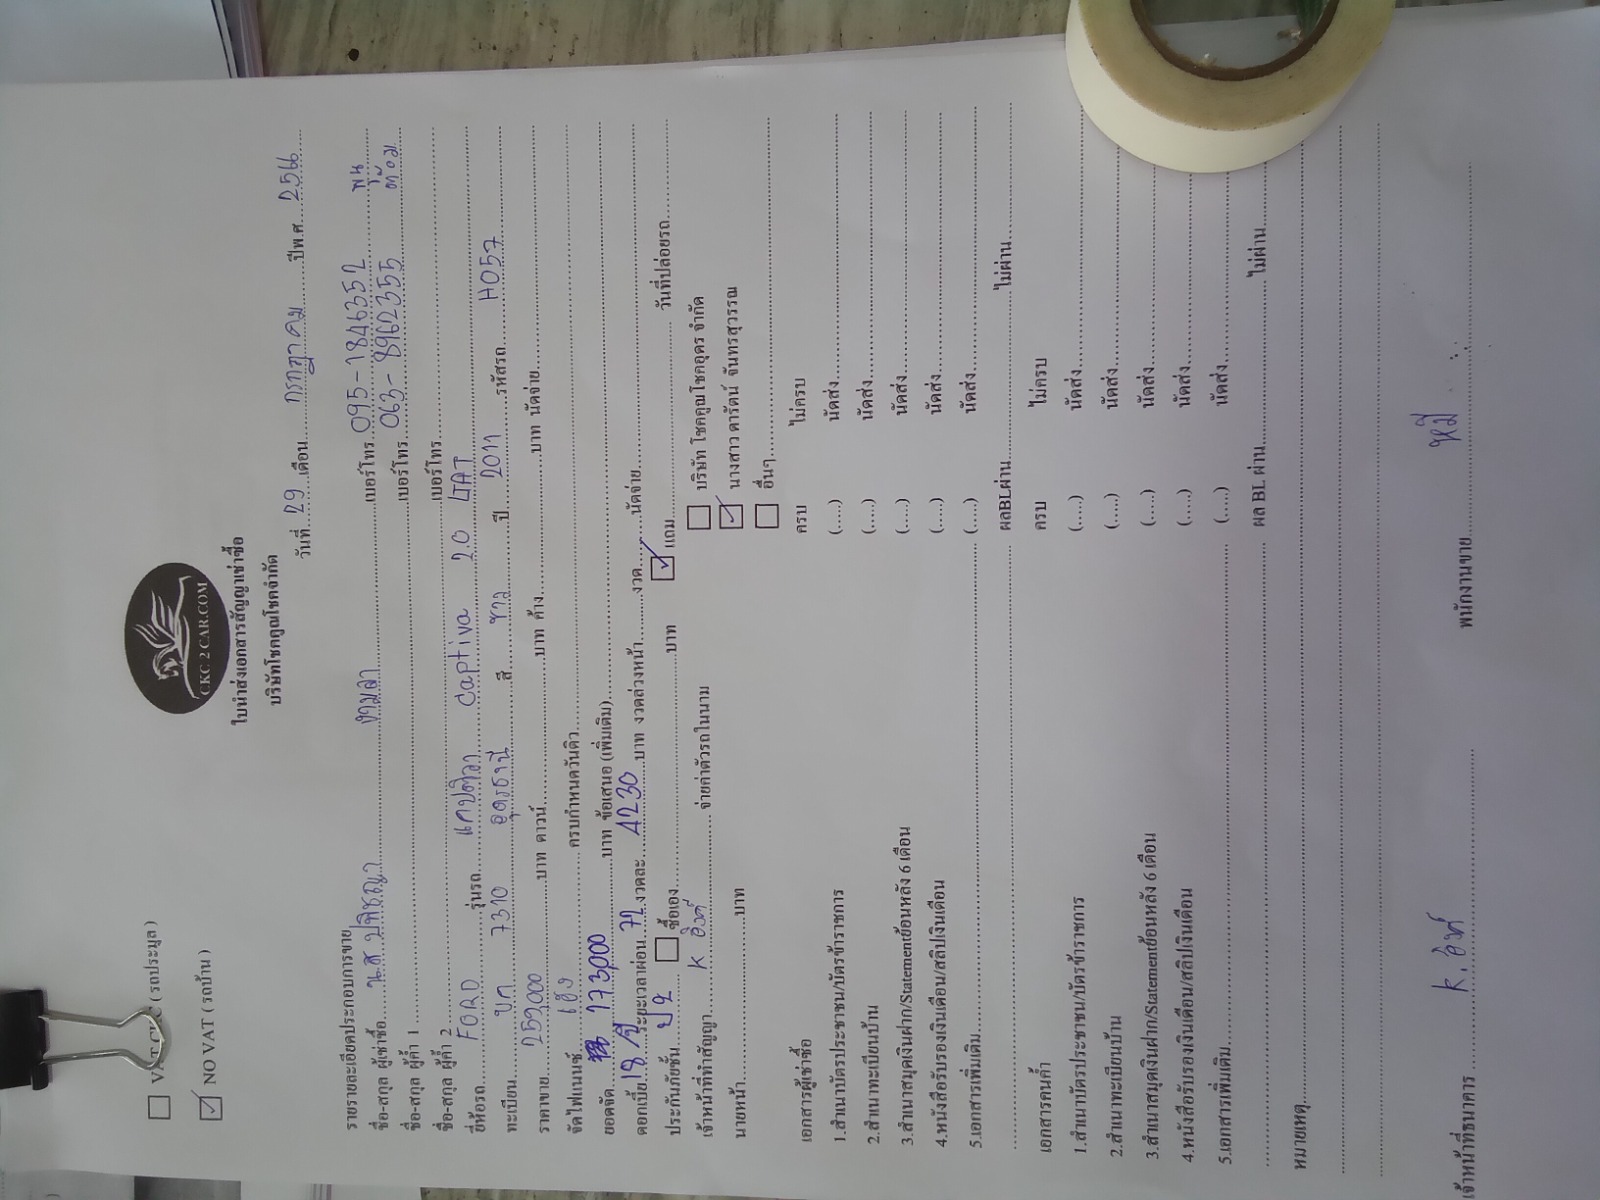 VAT CKC ( รถประมูล )
NO VAT ( รถบ้าน )
CKC. 2 CAR.COM
ใบนำส่งเอกสารสัญญาเช่าซื้อ
บริษัทโชคคูณโชคจำกัด
วันที่ 29 เดือน กรกฎาคม ปีพ.ศ 2566
รายรายละเอียดประกอบการขาย
ชื่อ-สกุล ผู้เช่าซื้อ น.ส. ปพิชญา งามลา เบอร์โทร 095-1846352 พน
ชื่อ-สกุล ผู้ค้ำ 1 เบอร์โทร 063-8962355 ต้อม
ชื่อ-สกุล ผู้ค้ำ 2 เบอร์โทร
ยี่ห้อรถ FORD รุ่นรถ แคปติวา captiva 2.0 LTAT
ทะเบียน ขก 7310 อุดรธานี สี ขาว ปี 2011 รหัสรถ H057
ราคาขาย 259,000 บาท ดาวน์ บาท ค้าง บาท นัดจ่าย
จัดไฟแนนซ์ เฮง ครบกำหนดวันคิว
ยอดจัด 173,000 บาท ข้อเสนอ (เพิ่มเติม)
ดอกเบี้ย 18 % ระยะเวลาผ่อน 72 งวดละ 4230 บาท งวดล่วงหน้า งวด นัดจ่าย
ประกันภัยชั้น ป2 ซื้อเอง บาท แถม วันที่ปล่อยรถ
เจ้าหน้าที่ทำสัญญา K อิงค์ จ่ายค่าตัวรถในนาม บริษัท โชคคูณโชคอุดร จำกัด
นายหน้า บาท นางสาว ดารัตน์ จันทรสุวรรณ
อื่นๆ
เอกสารผู้เช่าซื้อ ครบ ไม่ครบ
1.สำเนาบัตรประชาชน/บัตรข้าราชการ (....) นัดส่ง
2.สำเนาทะเบียนบ้าน (....) นัดส่ง
3.สำเนาสมุดเงินฝาก/Statementย้อนหลัง 6 เดือน (....) นัดส่ง
4.หนังสือรับรองเงินเดือน/สลิปเงินเดือน (....) นัดส่ง
5.เอกสารเพิ่มเติม (....) นัดส่ง
ผลBLผ่าน ไม่ผ่าน
เอกสารคนค้ำ ครบ ไม่ครบ
1.สำเนาบัตรประชาชน/บัตรข้าราชการ (....) นัดส่ง
2.สำเนาทะเบียนบ้าน (....) นัดส่ง
3.สำเนาสมุดเงินฝาก/Statementย้อนหลัง 6 เดือน (....) นัดส่ง
4.หนังสือรับรองเงินเดือน/สลิปเงินเดือน (....) นัดส่ง
5.เอกสารเพิ่มเติม (....) นัดส่ง
ผล BL ผ่าน ไม่ผ่าน
หมายเหตุ
เจ้าหน้าที่ธนาคาร K. อิงค์ พนักงานขาย หมี